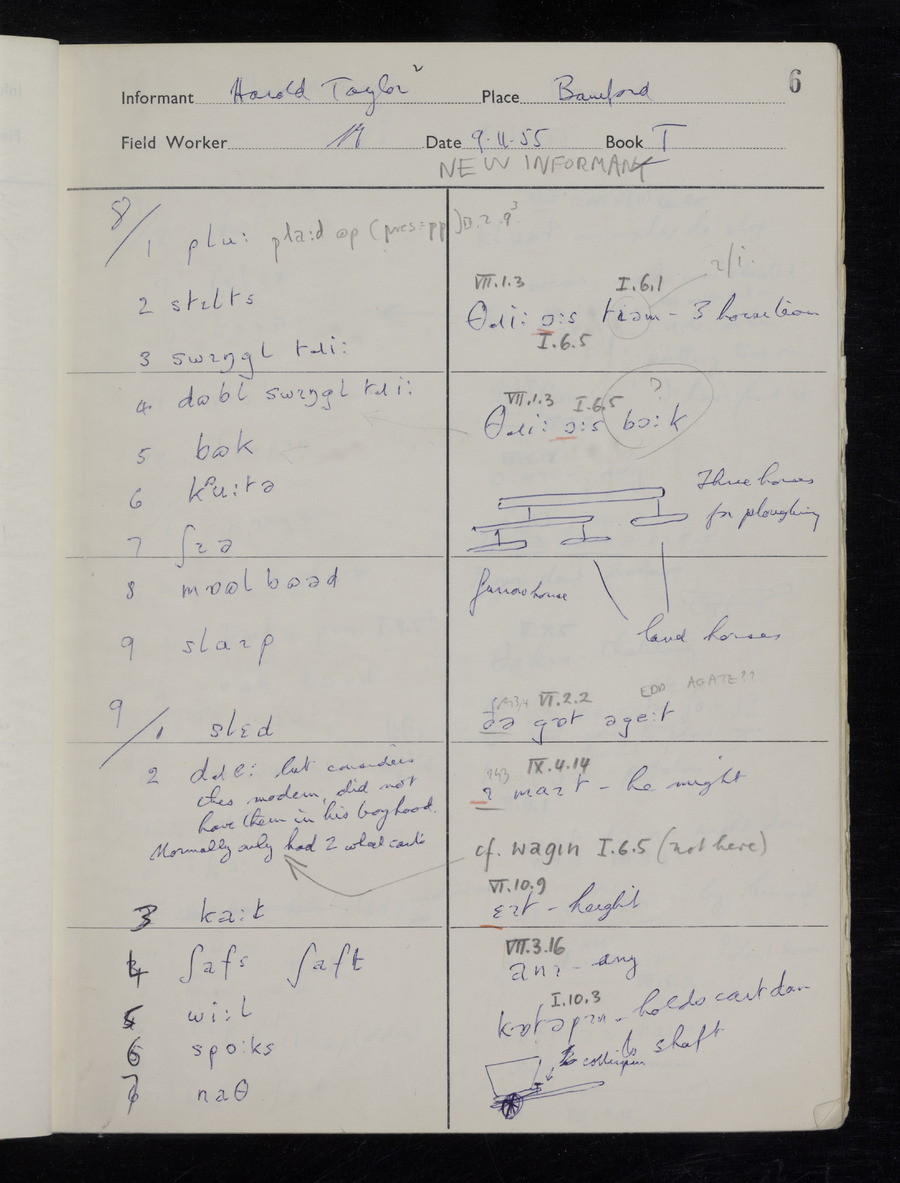 6
Informant Harold Taylor Place Bamford
Field Worker Date 9.11.55 Book I
NEW INFORMANT
8/1 pluː plaːd ɒp (pres:pp)
2 stɪlts
3 swɪŋgl tɹiː
4 dɒbl swɪŋgl tɹiː
5 bɒk
6 kᶷuːtə
7 ʃɪə
8 mɒəl bɒəd
9 slaɪp
9/1 slɛd
2 dɹɛː but considers
this modern, did not
have them in his boyhood.
Normally only had 2 wheel carts
3 kaːt
4 ʃafs ʃaft
5 wiːl
6 spoːks
7 naθ
ɪ/i.
VII.1.3 I.6.1
θɹiː ɔːs tɪəm - 3 horse team
I.6.5
?
VII.1.3 I.6.5
θɹiː ɔːs bɔːk
Three horses
for ploughing
furrow horse
land horses
VI.2.2 EDD AGATE??
ðə gɒt əgeːt
IX.4.14
ɪ maɪt - he might
cf. wagɪn I.6.5 (not here)
VI.10.9
ɛɪt - height
VII.3.16
anɪ - any
I.10.3
kɒtəpɪn - holds cart down
to shaft